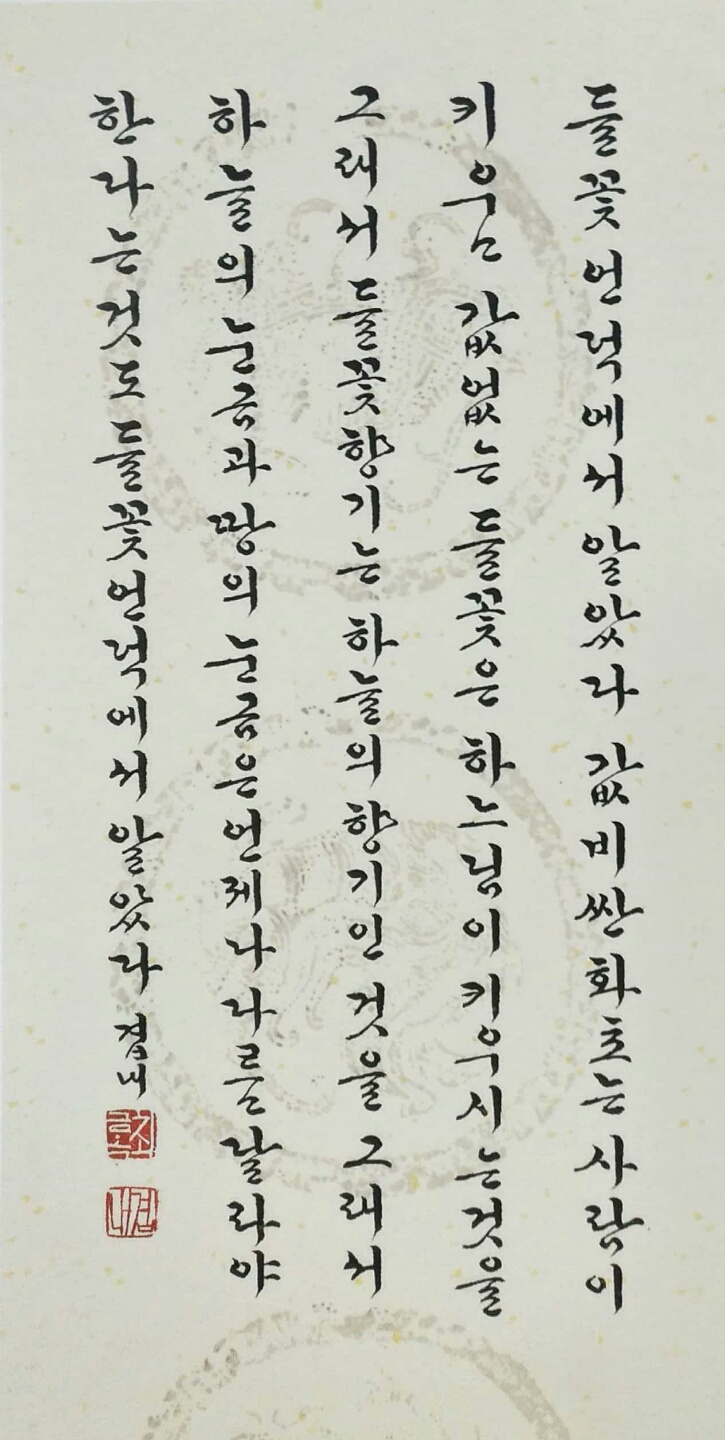 들꽃 언덕에서 알았다 값비싼 화초는 사람이
키움 값없는 들꽃은 하느님이 키우시는것을
그래서 들꽃향기는 하늘의 향기인 것을 그래서
하늘의 눈금과 땅의 눈금은 언제나 다름 달라야
한다는것도 들꽃언덕에서 알았다 겸내
겸내